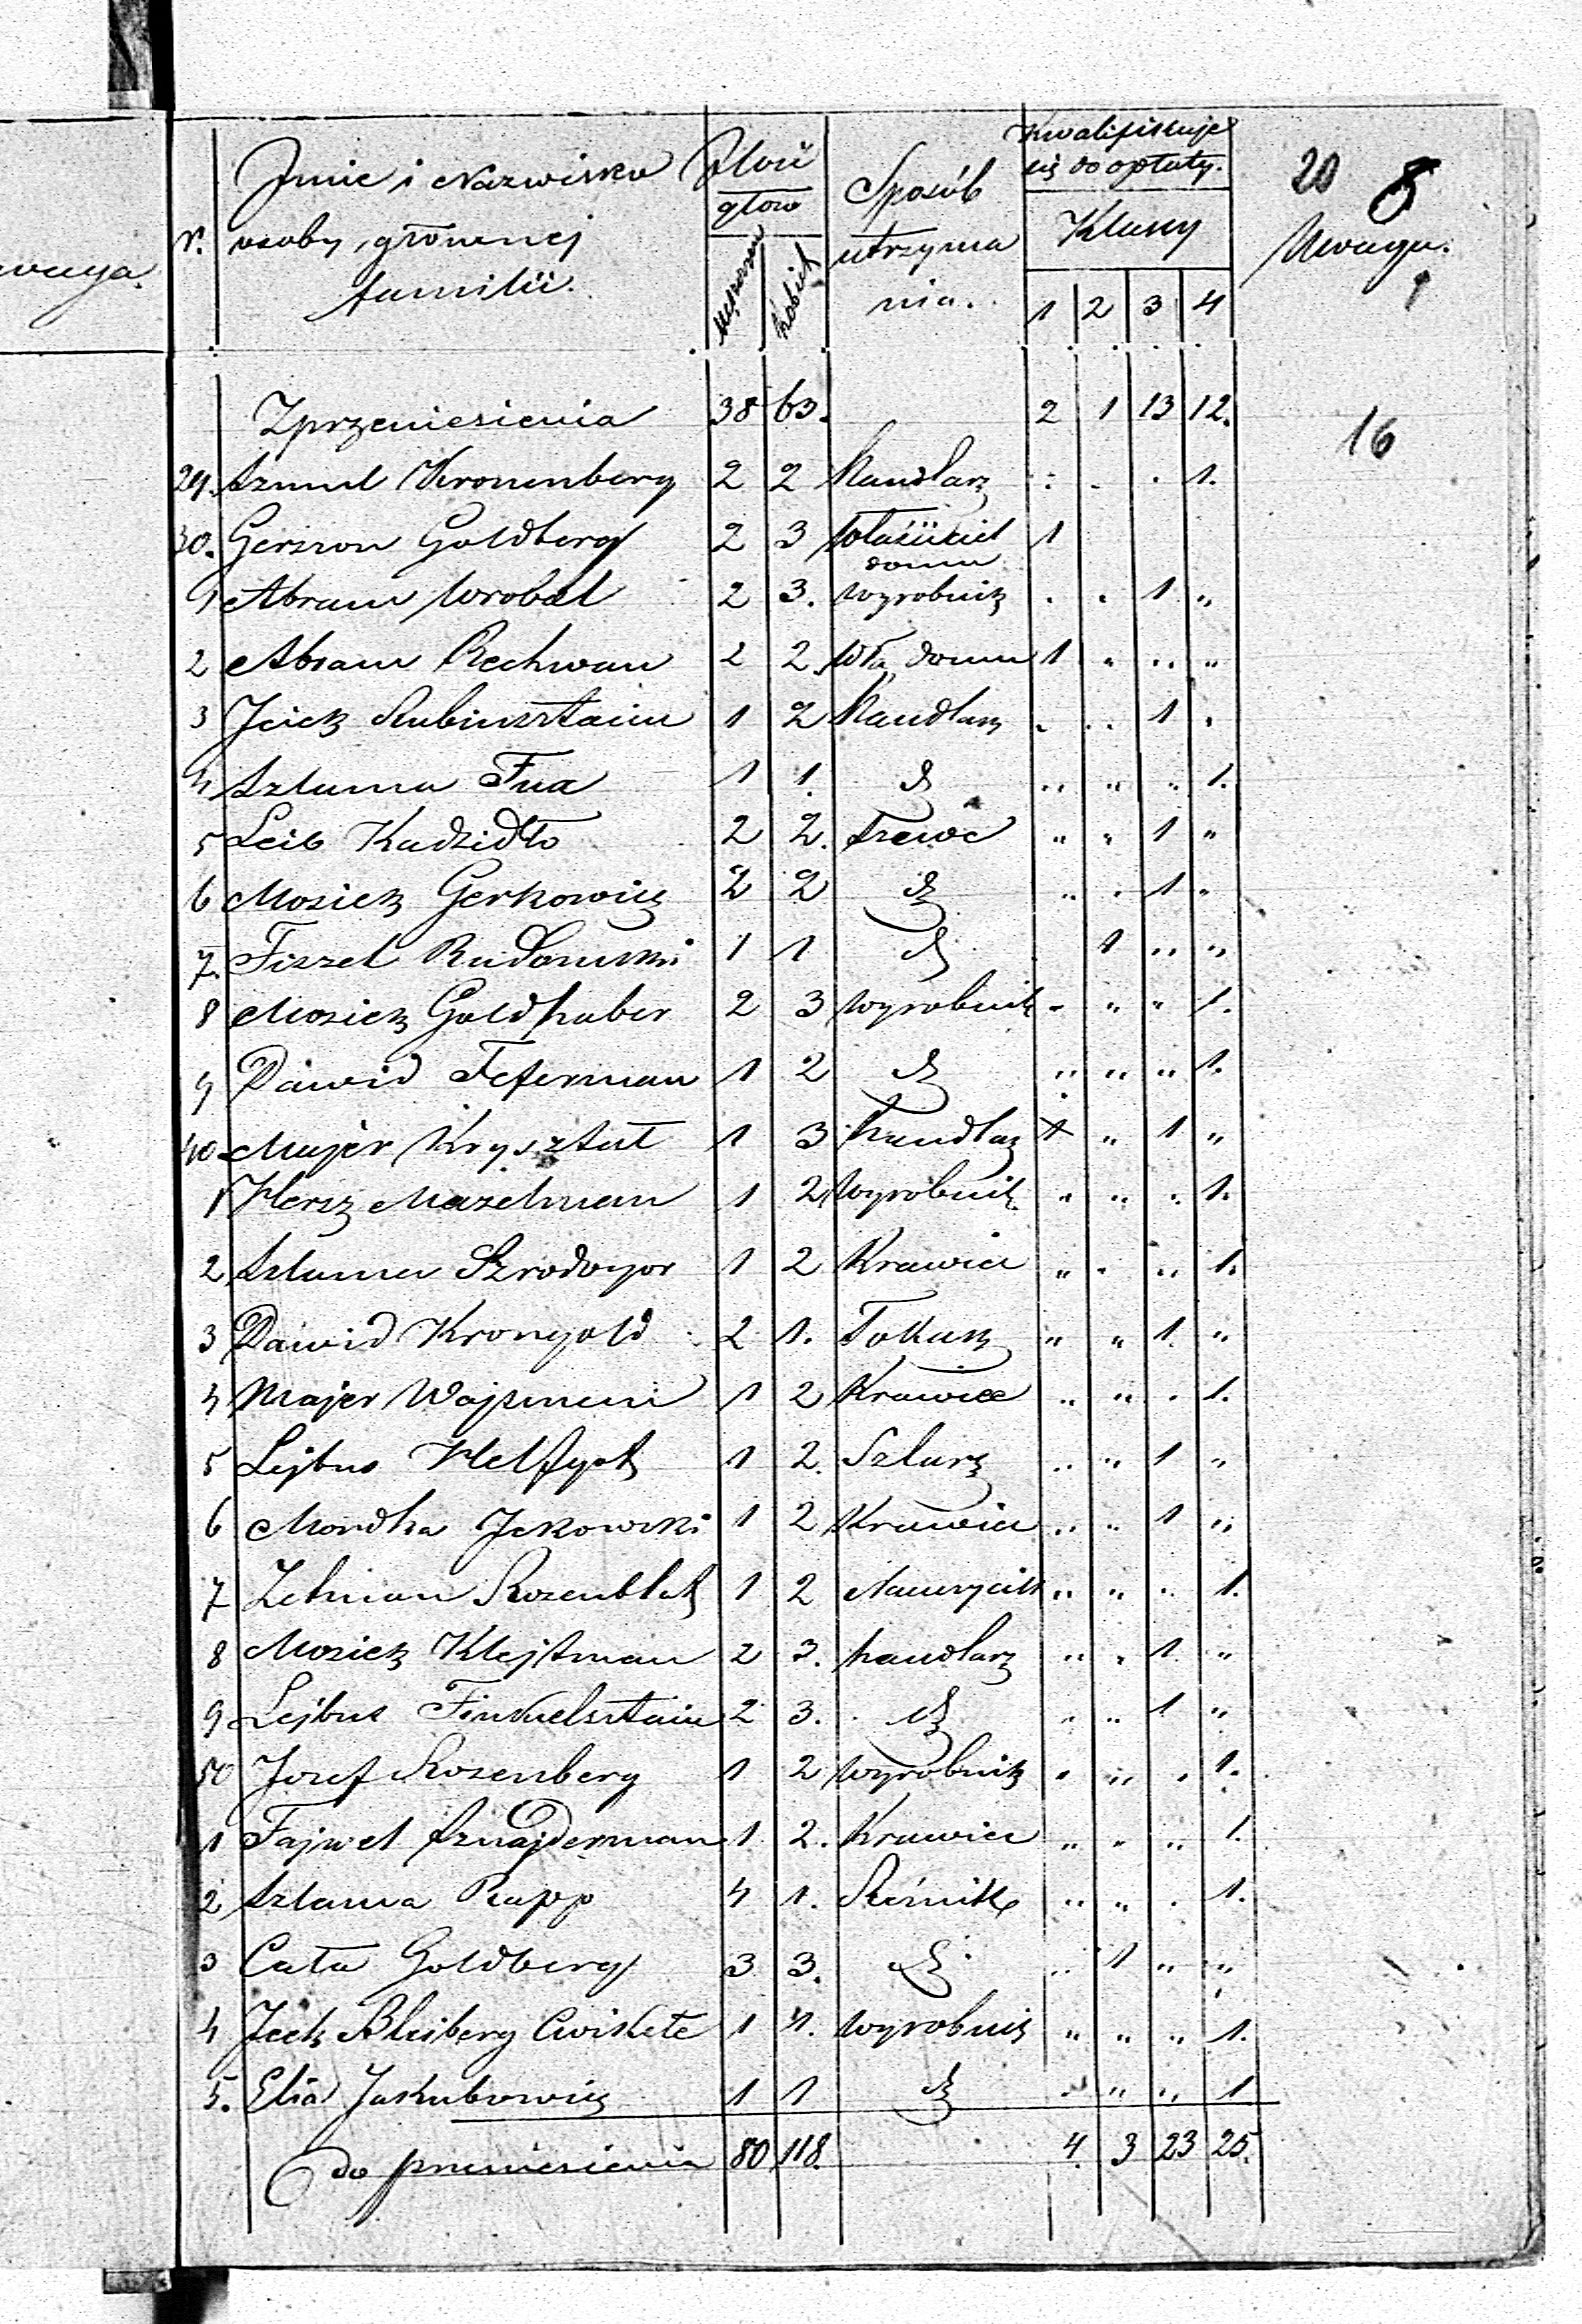 Kwalifikuje
Imie i Nazwisko Ilość Sposób się do opłaty. 20 8
głow
N. osoby głownej utrzyma Klassy Uwaga.
familii. Męzczyzn kobiet nia. 1 2 3 4
waga.
Z przeniesienia 38 63. 2 1 13 12. 16
29. Szmul Kronenberg 2 2 Handlarz 1.
30. Gerszon Goldberg 2 3 Właściciel 1
domu
1 Abram Wrobel 2 3. wyrobnik 1 "
2 Abram Rechwan 2 2 Wła. domu 1 " " "
3 Icick Rubinsztain 1 2 Handlarz 1
4 Szlama Fua 1 1. d 1.
5 Leib Kadzidło 2 2. szewc " " 1 "
6 Mosiek Gerkowicz 2 2 d 1 "
7. Fiszel Rudomski 1 1 d 1 " "
8 Mosiek Goldhaber 2 3 wyrobnik " " 1.
9 Dawid Feferman 1 2 d " " " 1.
40 Majer Kryształ 1 3 handlarz " 1 "
1 Hersz Mazelman 1 2 Wyrobnik " " 1.
2 Szlama Szrodogor 1 2 Krawiec " " 1.
3 Dawid Krongold 2 1. Tokarz " " 1. "
4 Majer Wajsman 1 2 Krawiec " " 1.
5 Lejbus Helfgot 1 2. Szklarz " " 1 "
6 Mordka Jakowski 1 2 Krawiec " " 1 "
7 Zelman Rozenblat 1 2 Nauczyciel " " " 1.
8 Mosiek Klejtman 2 3. handlarz " 1. "
9 Lejbus Finkelsztain 2 3. d " 1 "
50 Josef Rosenberg 1 2 wyrobnik " 1.
1 Fajwel Sznajderman 1 2. Krawiec " " " 1.
2 Szlama Rapp 4 1. Rzeźnik " " 1.
3 Cała Goldberg 3 3. d " 1 " "
4 Icek Bleiberg 1 4. wyrobnik " " " 1.
5. Elia Jakubowicz 1 1 d " " 1
do przeniesienia 80 118. 4. 3 23 25.